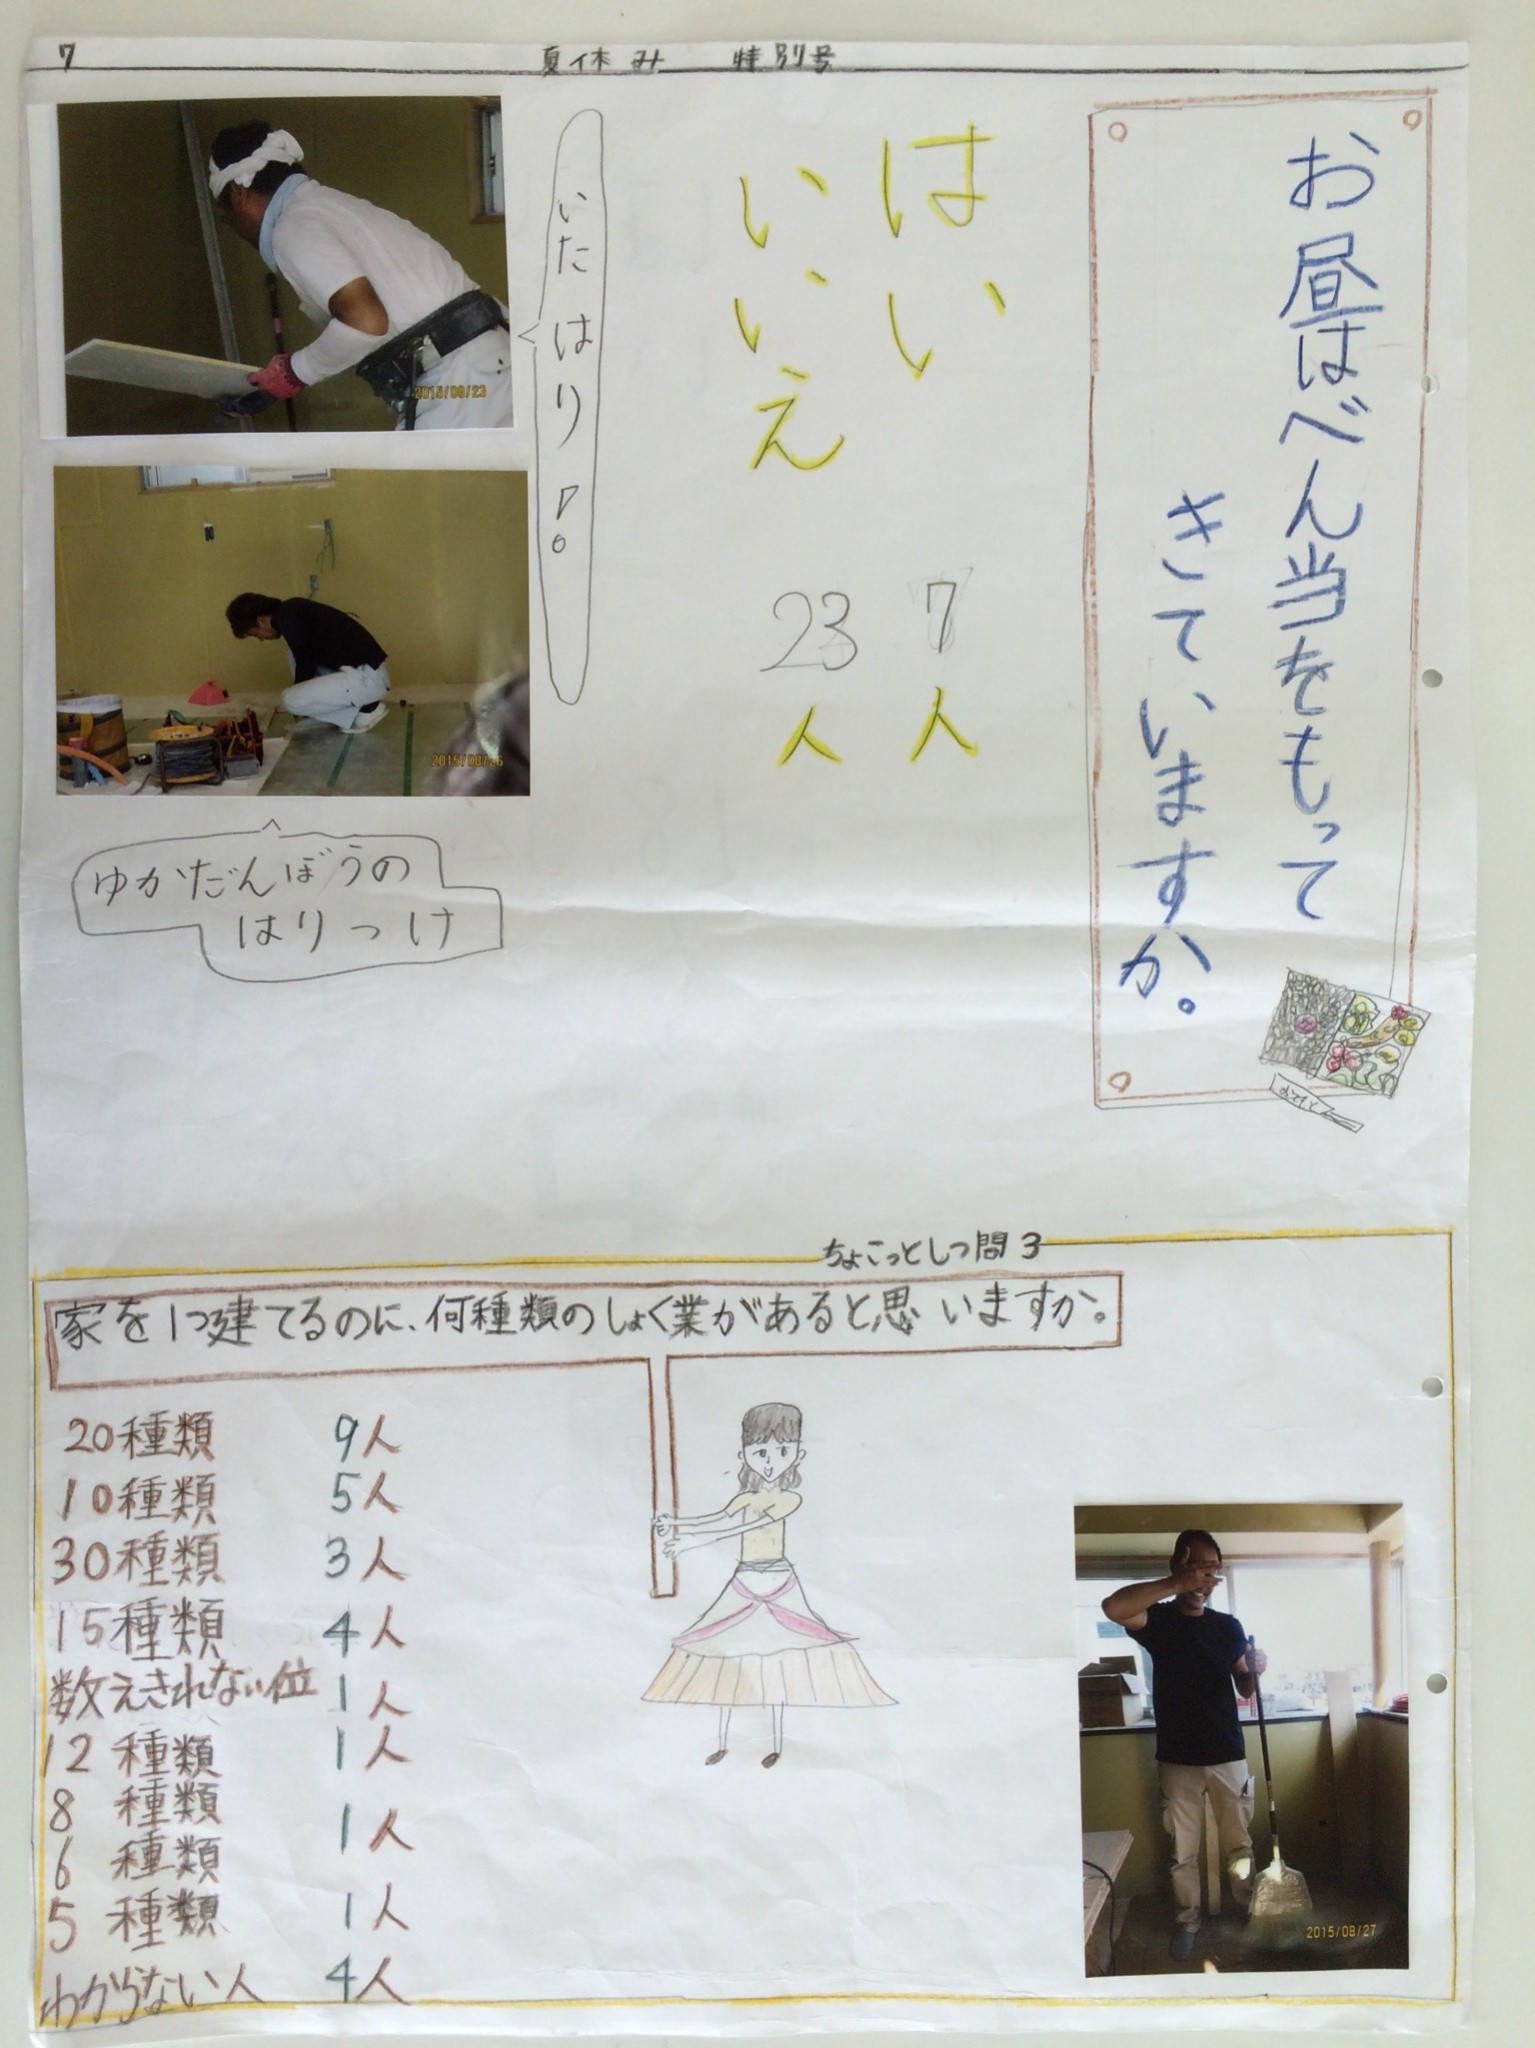 7
夏休み 特別号
お昼はべん当をもって
きていますか。
はい 7人
いいえ 23人
いたはり!。
2015/08/23
2015/08/26
ゆかだんぼうの
はりっけ
ちょこっとしつ問3
家を1つ建てるのに、何種類のしょく業があると思いますか。
20種類 9人
10種類 5人
30種類 3人
15種類 4人
数えきれない位 1人
12種類 1人
8種類
6種類 1人
5種類 1人
わからない人 4人
2015/08/27